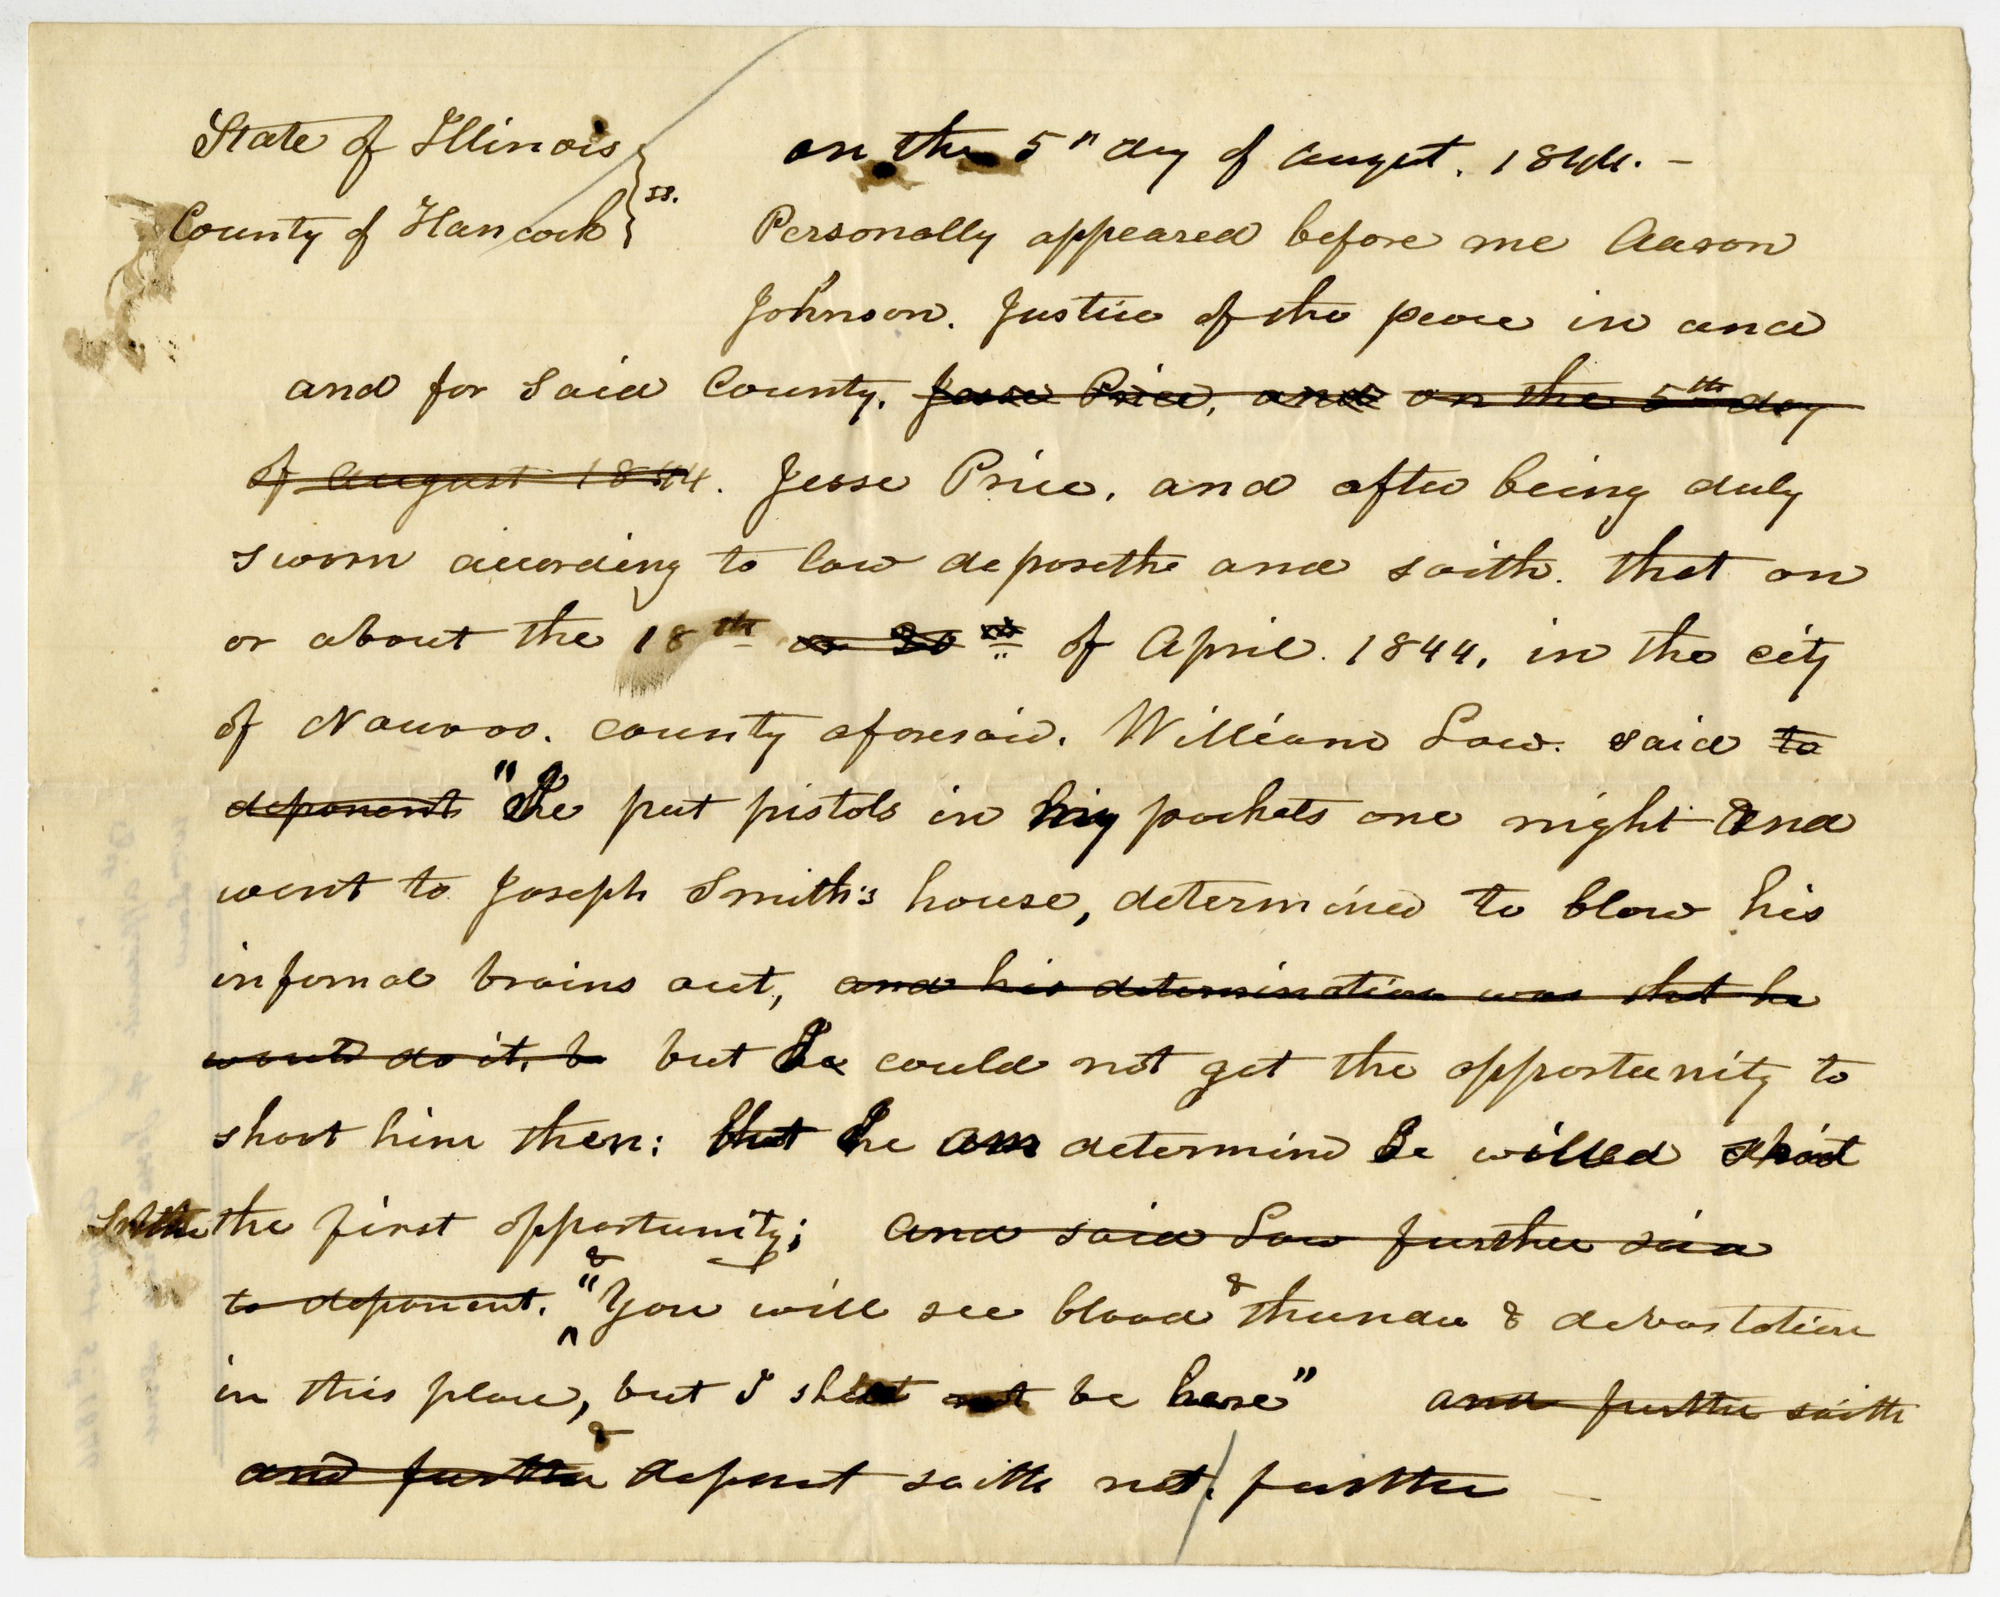 State of Illinois } on the 5" day of August. 1844. —
County of Hancock } ss. Personally appeared before me Aaron
Johnson. Justice of the peace in and
and for Said County. Jesse Price, and on the 5th day
of August 1844. Jesse Price. and after being duly
sworn according to law deposethe and saith. that on
or about the 18th or 20th of April. 1844. in the city
of Nauvoo. county aforesaid. William Law. said to
deponent "I put pistols in my pockets one night and
went to Joseph Smith's house, determined to blow his
infernal brains out, and his determination was that he
would do it, b but I could not get the opportunity to
shoot him then: that I am determind I will shoot
Smith the first opportunity; and said Law further said
to deponent. & "You will see blood & thunder & devastation
in this place, but I shall not be here" and further saith
and further & deponent saith not. further —